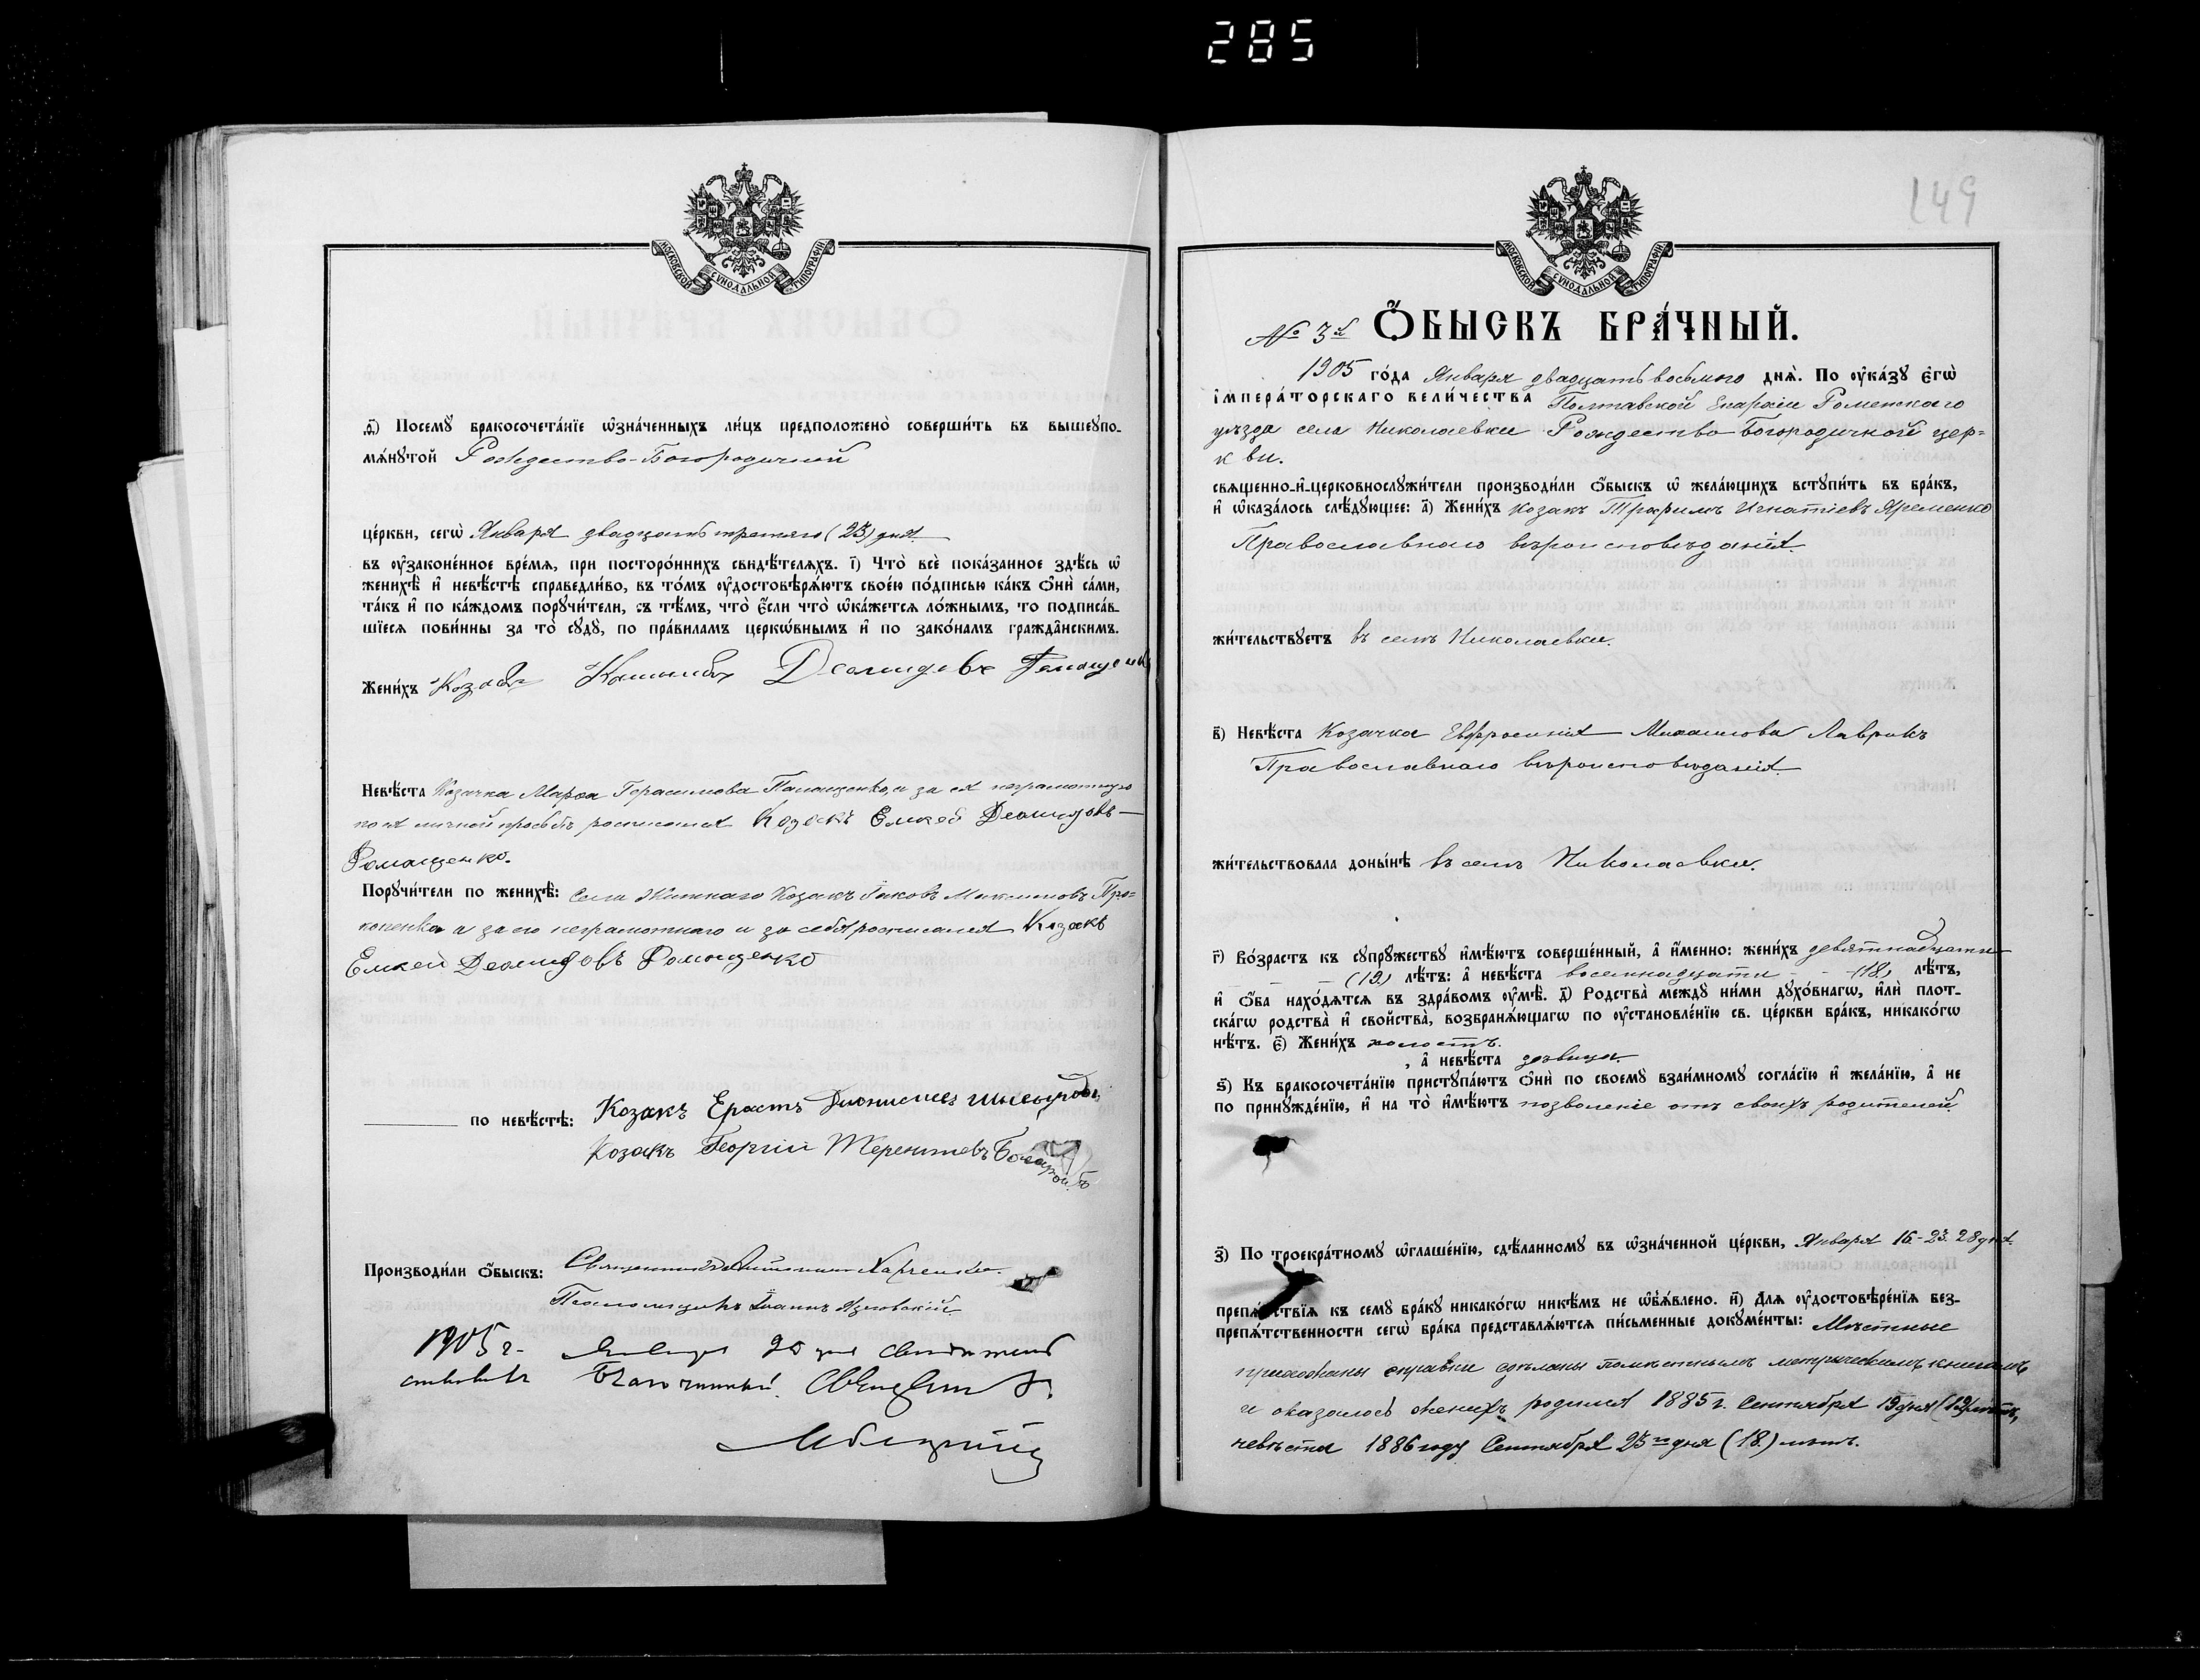 285
МОСКОВСКОЙ СѴНОДАЛЬНОЙ ТИПОГРАФІИ
ѳ҃) Посемꙋ бракосочета́нїе ѡ҆зна́ченныхъ ли́цъ предположено̀ соверши́ть въ вышеꙋпо-
мѧ́нꙋтой Рождество-Богородичной
це́ркви, сегѡ̀ Января двадцать третьяго (23) дня
въ ᲂу҆законе́нное вре́мѧ, при посторо́ннихъ свидѣ́телѧхъ. і҃) Что̀ всѐ пока́занное здѣ́сь ѡ҆
женихѣ̀ и҆ невѣ́стѣ справедли́во, въ то́мъ ᲂу҆достовѣрѧ́ютъ свое́ю по́дписью ка́къ ѻ҆нѝ са́ми,
та́къ и҆ по ка́ждомъ порꙋчи́тели, съ тѣ́мъ, что̀ є҆́сли что̀ ѡ҆ка́жетсѧ ло́жнымъ, то подписа́в-
шїесѧ пови́нны за то̀ сꙋдꙋ̀, по пра́виламъ церкѡ́внымъ и҆ по зако́намъ гражда̂нскимъ.
Жени́хъ Козакъ Деомидовъ Ромащенко
Невѣ́ста Козачка Марѳа Герасимова а за ея неграмотную
по ея личной просьбѣ росписался Козакъ Емкей Деомидовъ
Ромащенко.
Порꙋчи́тели по женихѣ̀: Села Козакъ Іаковъ Максимовъ Про-
копенко а за его неграмотнаго и за себя росписался Козакъ
Емкей Деомидовъ Ромащенко
по невѣ́стѣ: Козакъ Ерастъ Діонисіевъ
Козакъ Георгій Терентіевъ
Производи́ли ѻ҆́быскъ: Священникъ
Псаломщикъ Іоаннъ
1905 г. Января дня
Благочинный Священникъ
149
МОСКОВСКОЙ СѴНОДАЛЬНОЙ ТИПОГРАФІИ
№ 3й Ѻ҆́БЫСКЪ БРА́ЧНЫЙ.
1905 го́да Января двадцать восьмого днѧ̀. По ᲂу҆ка́зꙋ є҆гѡ̀
і҆мпера́торскаго вели́чества Полтавской Епархіи Роменскаго
уѣзда села Николаевки Рождество-Богородичной цер-
кви.
свѧщенно-и҆-церковнослꙋжи́тели производи́ли ѻ҆́быскъ ѡ҆ жела́ющихъ встꙋпи́ть въ бра́къ,
и҆ ѡ҆каза́лось слѣ́дꙋющее: а҃) Жени́хъ Козакъ Трофимъ Игнатіевъ Яременко
Православнаго вѣроисповѣданія
жи́тельствꙋетъ въ селѣ Николаевки.
в҃) Невѣ́ста Козачка Евфросинія Михаилова Лаврикъ
Православнаго вѣроисповѣданія.
жи́тельствовала доны́нѣ въ селѣ Николаевки.
г҃) Во́зрастъ къ сꙋпрꙋ́жествꙋ и҆мѣ́ютъ соверше́нный, а҆ и҆́менно: жени́хъ девятнадцати
(19) лѣ́тъ: а҆ невѣ́ста восемнадцати (18) лѣ́тъ,
и҆ ѻ҆́ба нахо́дѧтсѧ въ здра́вомъ ᲂу҆мѣ̀. д҃) Родства̀ междꙋ̀ ни́ми дꙋхо́внагѡ, и҆лѝ плот-
ска́гѡ родства̀ и҆ свойства̀, возбранѧ́ющагѡ по ᲂу҆становле́нїю св. це́ркви бра́къ, никако́гѡ
нѣ́тъ. є҃) Жени́хъ холостъ.
, а҆ невѣ́ста дѣвица.
ѕ҃) Къ бракосочета́нїю пристꙋпа́ютъ ѻ҆нѝ по своемꙋ̀ взаи́мномꙋ согла́сїю и҆ жела́нїю, а҆ не
по принꙋжде́нїю, и҆ на то̀ и҆мѣ́ютъ позволеніе отъ своихъ родителей.
з҃) По троекра́тномꙋ ѡ҆глаше́нїю, сдѣ́ланномꙋ въ ѡ҆зна́ченной це́ркви, Января 16-23. 28 дня.
препѧ́тствїѧ къ семꙋ̀ бра́кꙋ никако́гѡ никѣ́мъ не ѡ҆б̾ѧ́влено. и҃) Длѧ ᲂу҆достовѣре́нїѧ без-
препѧ́тственности сегѡ̀ бра́ка представлѧ́ютсѧ пи́сьменные докꙋме́нты: Мѣстные
прихожаны справки сдѣланы помѣстнымъ метрическимъ книгамъ
и оказалось женихъ родился 1885 г. Сентября 19 дня (19) лѣтъ,
невѣста 1886 году Сентября 25го дня (18) лѣтъ.